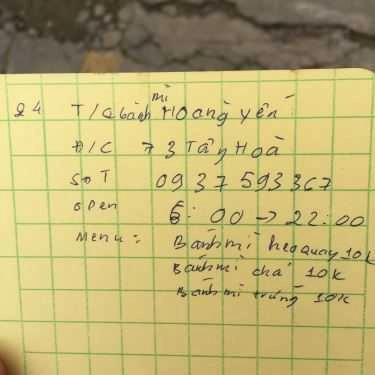 24 T/G bánh mì Hoàng yến
Đ/C 73 Tân Hoà
SĐT 0937593367
open 6:00 → 22:00
Menu: Bánh mì heo quay 10k
Bánh mì chả 10k
Bánh mì trứng 10k